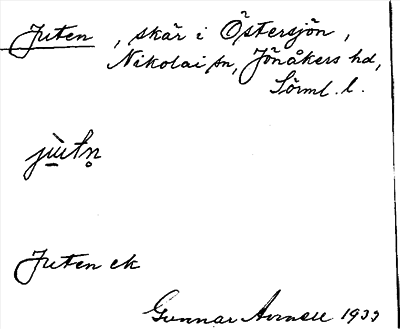 Juten, skär i Östersjön,
Nikolai sn, Jönåkers hd,
Sörml. l.
Juten ek
Gunnar 1933